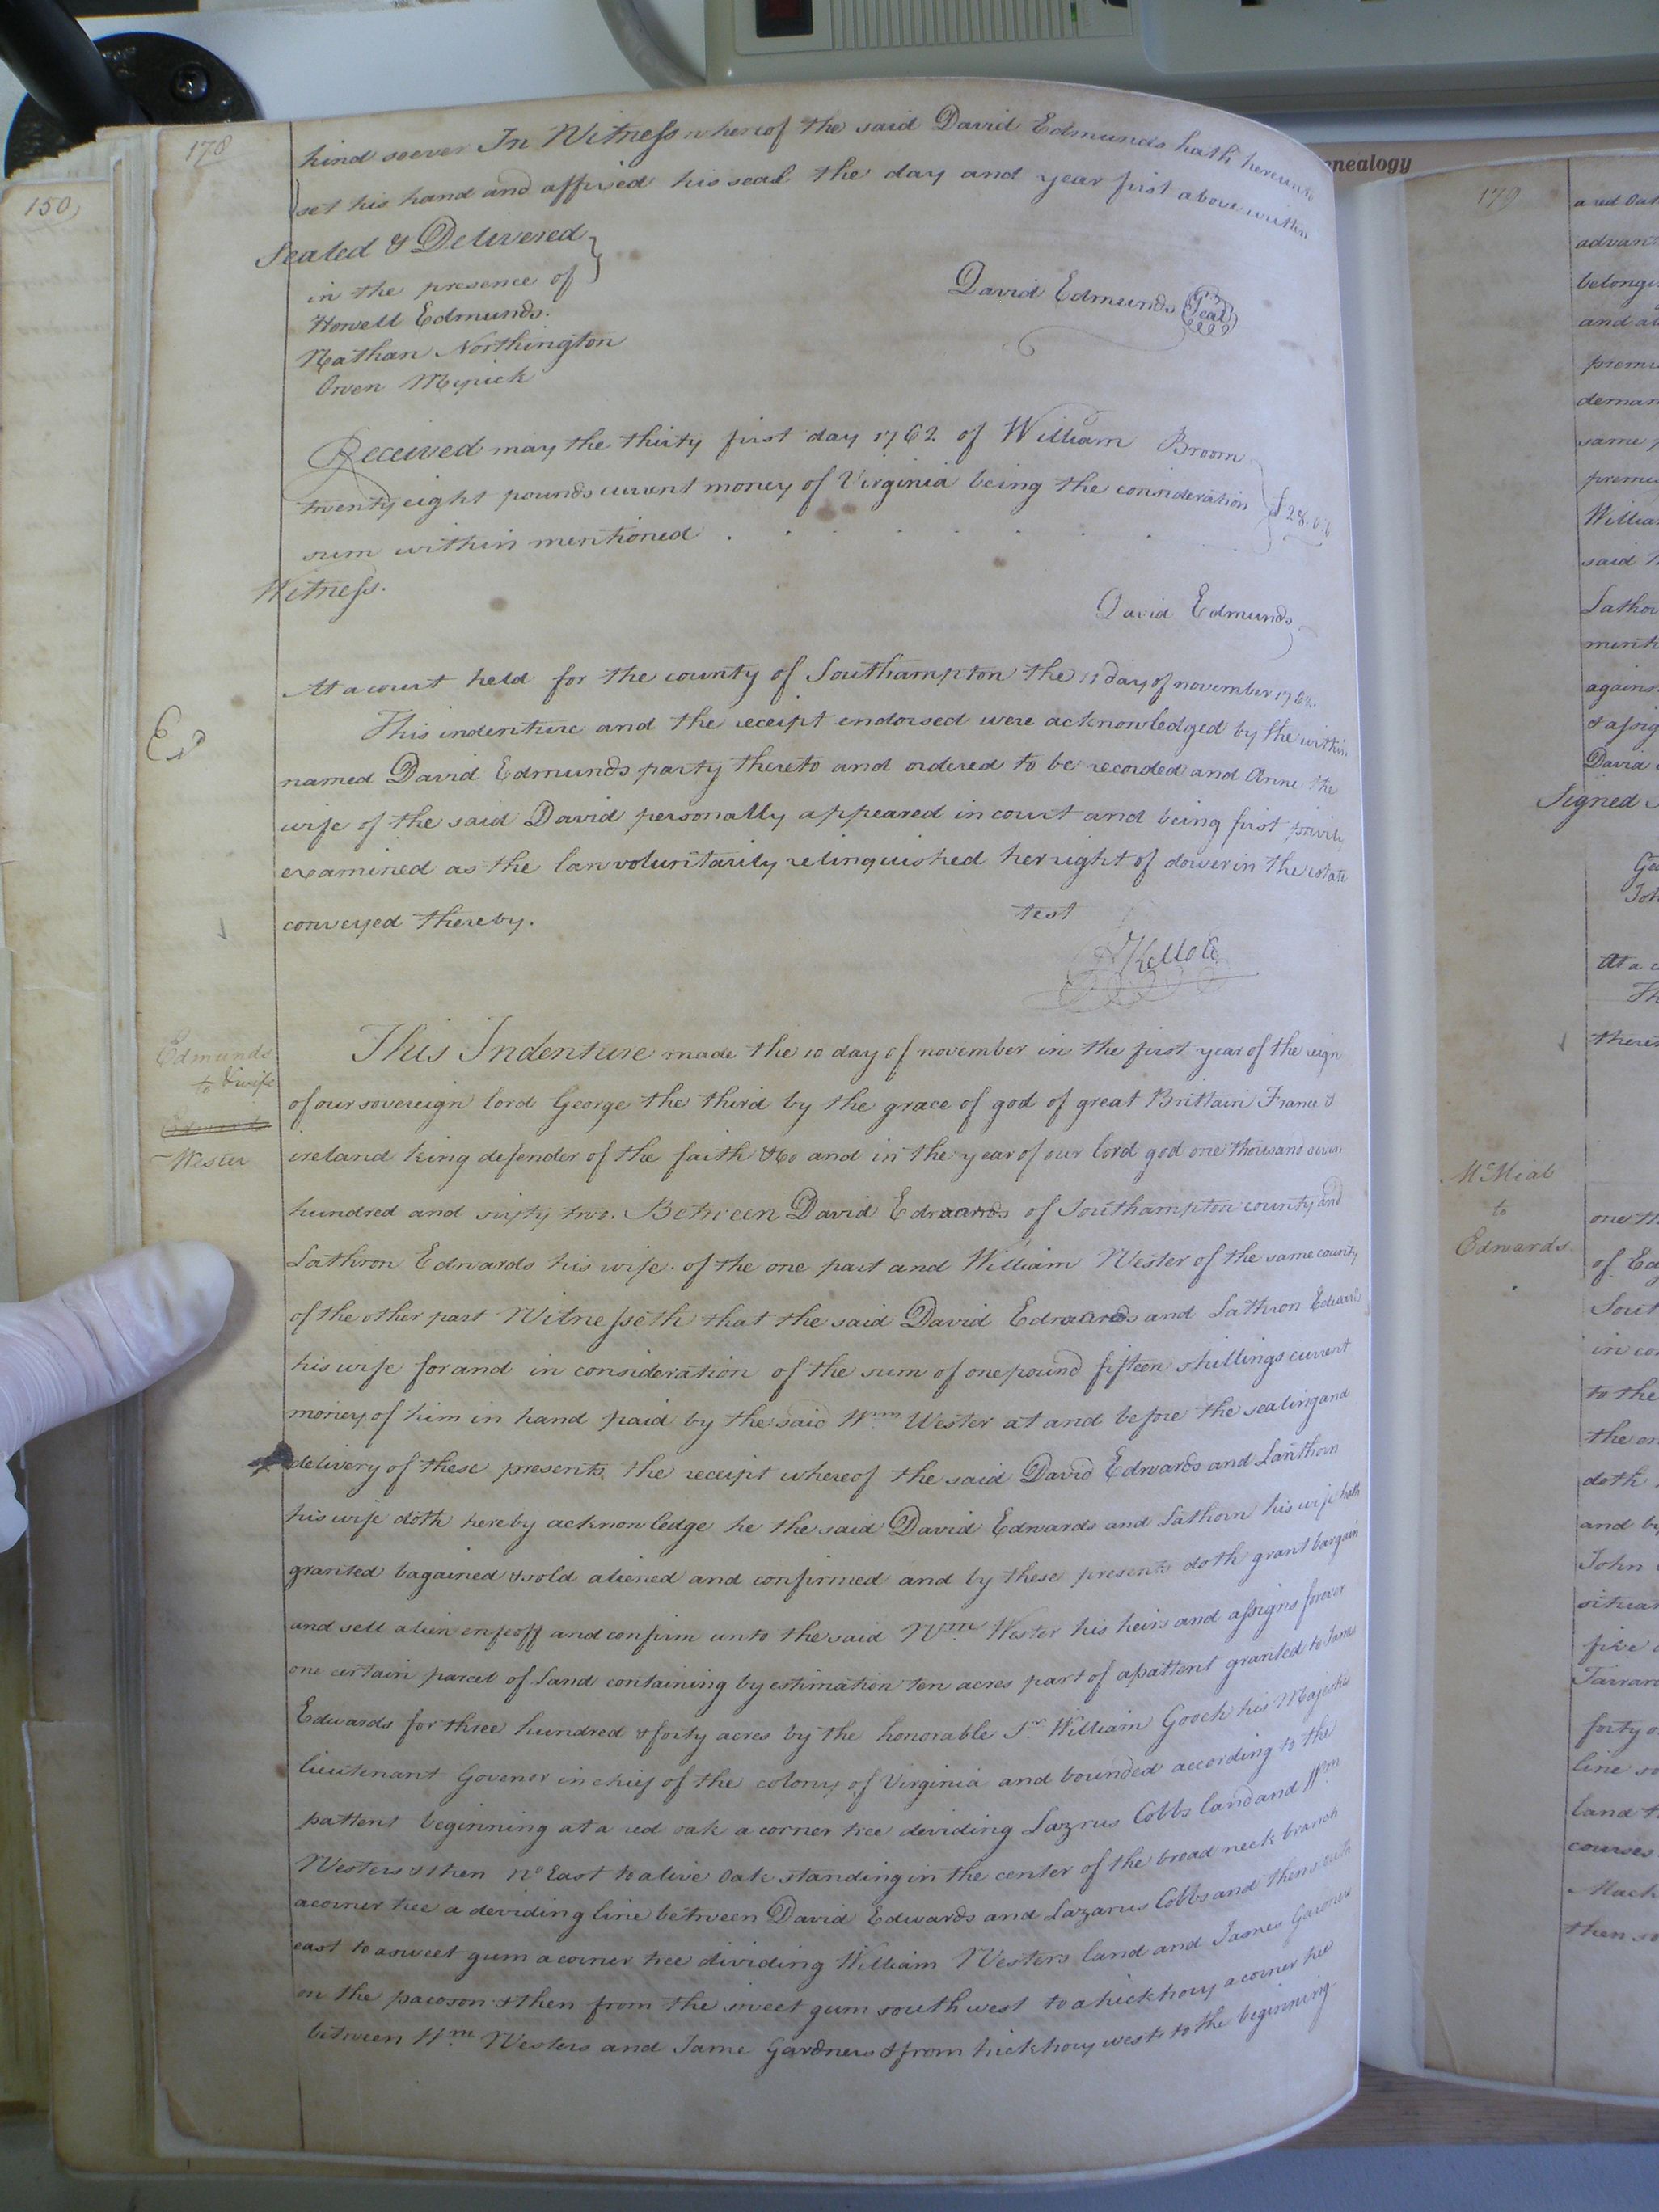 nealogy
150
178
kind soever In Witness whereof the said David Edmunds hath hereunto
set his hand and affixed his seal the day and year first above written
Sealed & Delivered
in the presence of
David Edmunds Seal
Howell Edmunds.
Nathan Northington
Owen Myrick
Received may the thirty first day 1762 of William Broom
twenty eight pounds current money of Virginia being the consideration £28.0.0
sum within mentioned
Witness.
David Edmunds
At a court held for the county of Southampton the 11 day of november 1762.
This indenture and the receipt endorsed were acknowledged by the within
Exd
named David Edmunds party thereto and ordered to be recorded and Anne the
wife of the said David personally appeared in court and being first privily
examined as the law voluntarily relinquished her right of dower in the estate
conveyed thereby. test
Kello
Edmunds
& wife
to
Wester
This Indenture made the 10 day of november in the first year of the reign
of our sovereign lord George the third by the grace of god of great Brittain France &
ireland king defender of the faith &c and in the year of our lord god one thousand seven
hundred and sixty two. Between David Edwards of Southampton county and
Lathron Edwards his wife of the one part and William Wester of the same county
of the other part Witnesseth that the said David Edwards and Lathron Edwards
his wife for and in consideration of the sum of one pound fifteen shillings current
money of him in hand paid by the said Wm. Wester at and before the sealing and
delivery of these presents the receipt whereof the said David Edwards and Lanthorn
his wife doth hereby acknowledge he the said David Edwards and Lathorn his wife hath
granted bagained & sold aliened and confirmed and by these presents doth grant bargain
and sell alien enfeoff and confirm unto the said Wm. Wester his heirs and assigns forever
one certain parcel of Land containing by estimation ten acres part of a pattent granted to James
Edwards for three hundred & forty acres by the honorable Sr. William Gooch his Majesties
lieutenant Govenor in chief of the colony of Virginia and bounded according to the
pattent beginning at a red oak a corner tree deviding Lazrus Cobbs land and Wm
Westers & then No East to a live Oak standing in the center of the broad neck branch
a corner tree a deviding line between David Edwards and Lazarus Cobbs and then south
east to a sweet gum a corner tree dividing William Westers land and James Gardners
on the pacoson & then from the sweet gum south west to a hickhory a corner tree
between Wm. Westers and Jame Gardners & from hickhory west to the beginning
179
a red Oak
belong
and
same
William
said
David
Signed
At a
McMial
to
Edwards
of
in
to the
doth
and by
John
forty
land
courses